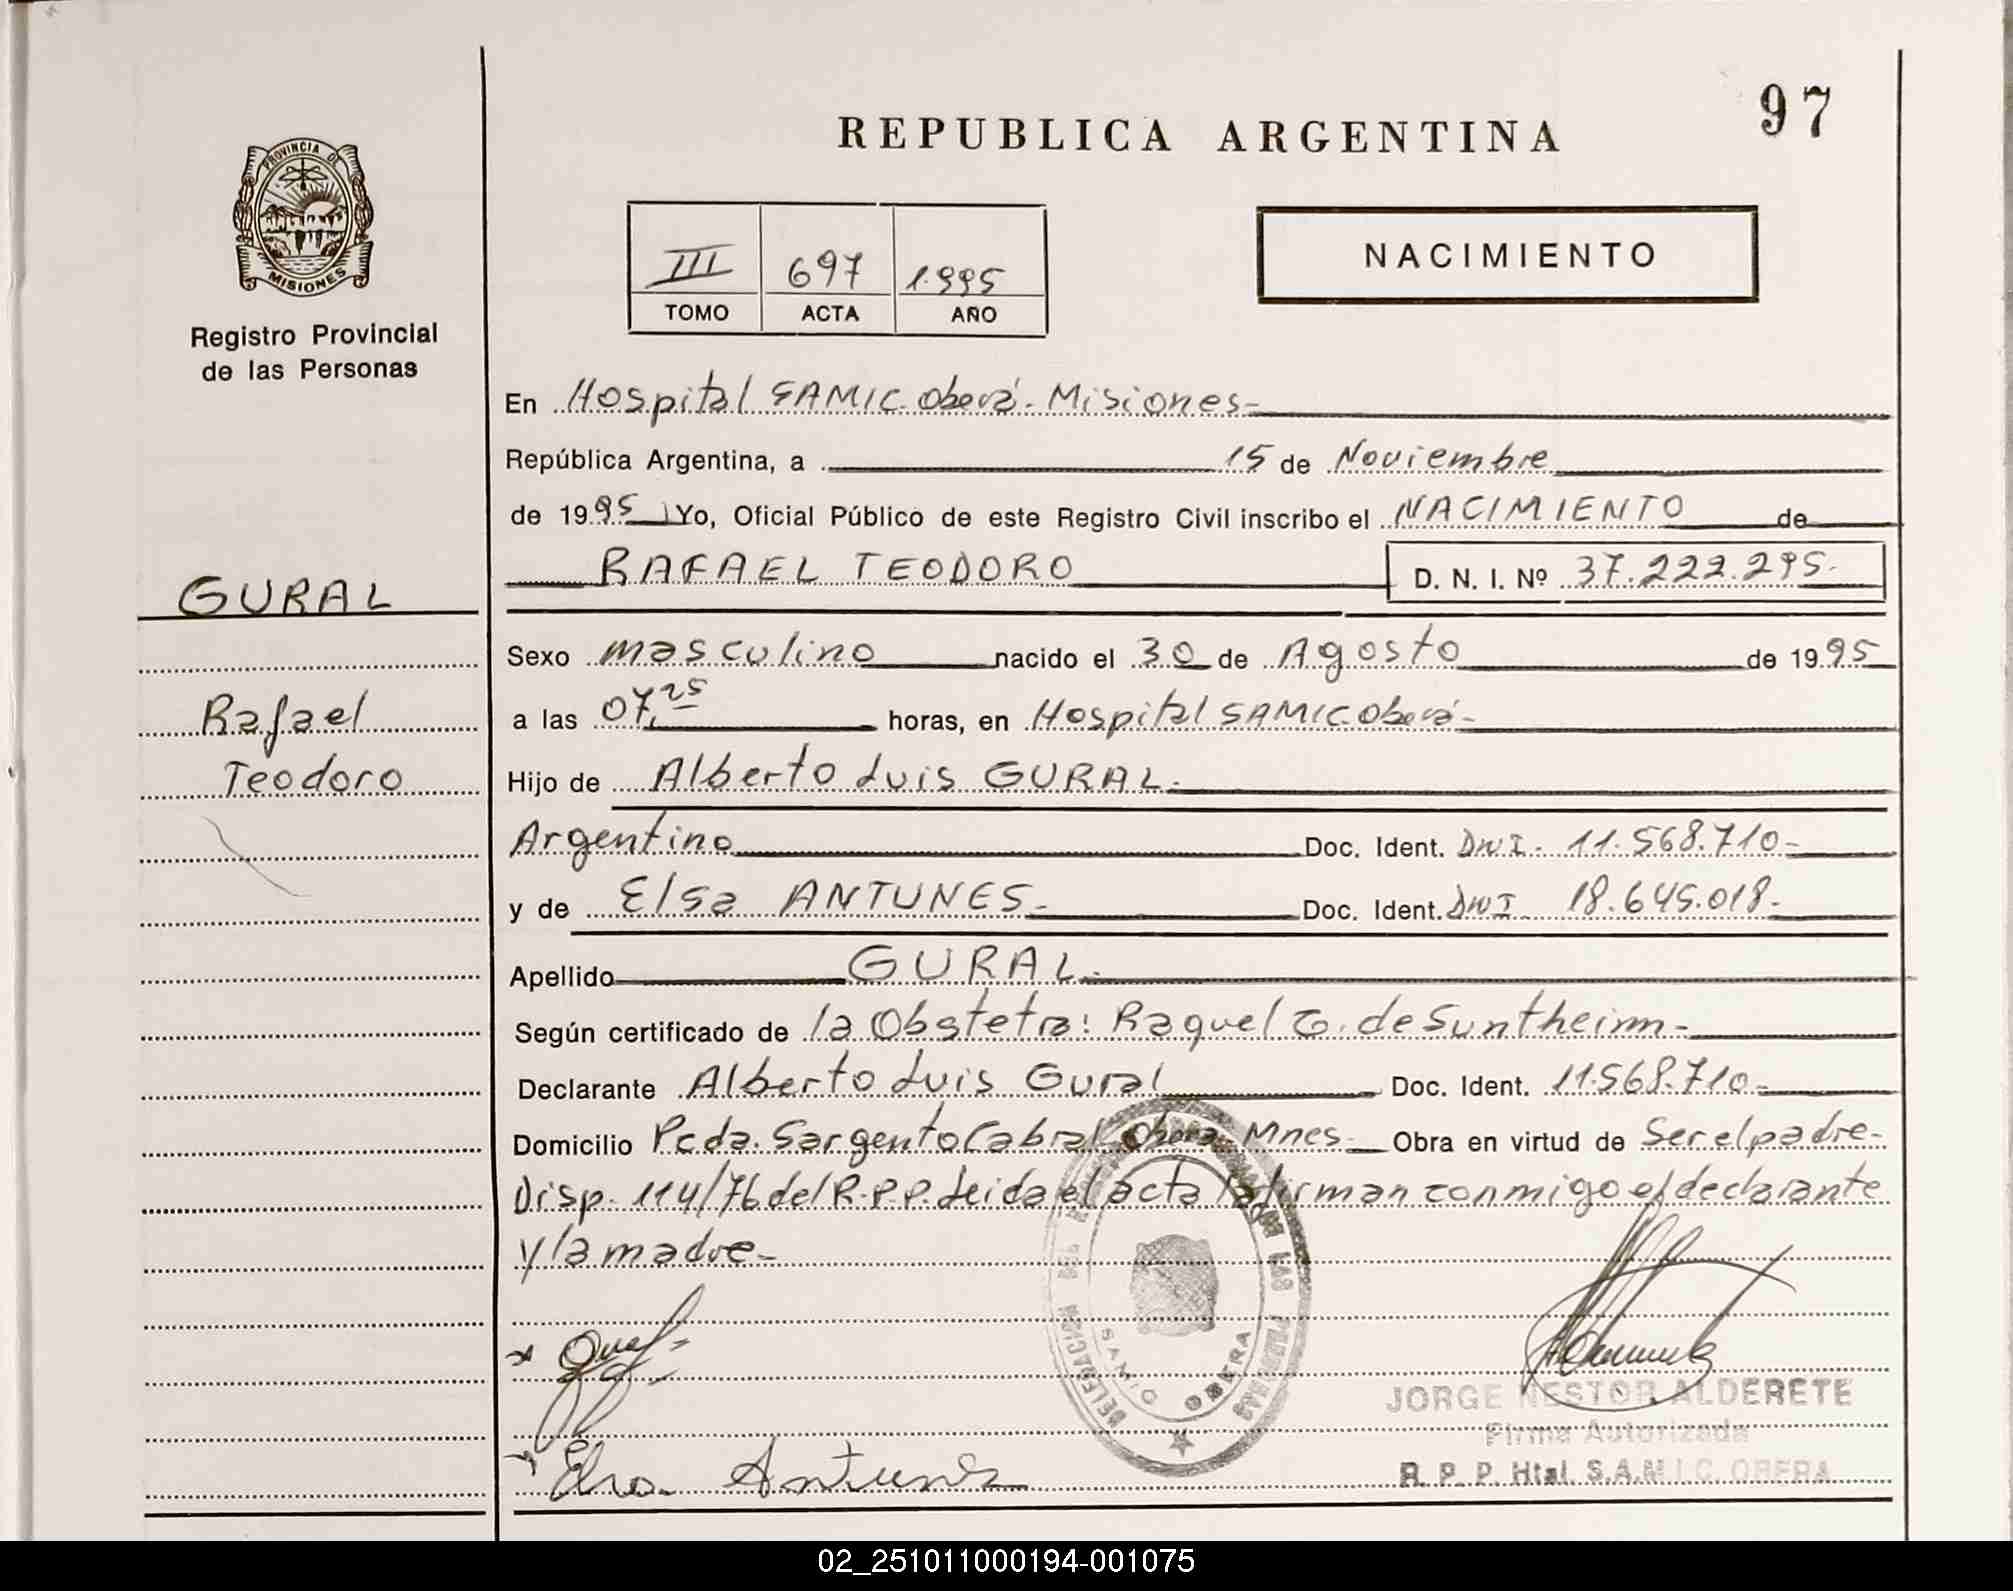 97
REPUBLICA ARGENTINA
PROVINCIA DE
MISIONES
Registro Provincial
de las Personas
III 697 1.995
TOMO ACTA AÑO
NACIMIENTO
GURAL
Rafael
Teodoro
En Hospital SAMIC. Oberá. Misiones-
República Argentina, a 15 de Noviembre
de 1995 Yo, Oficial Público de este Registro Civil inscribo el NACIMIENTO de
RAFAEL TEODORO D. N. I. Nº 37.222.295.
Sexo masculino nacido el 30 de Agosto de 1995
a las 07,25 horas, en Hospital SAMIC. Oberá-
Hijo de Alberto Luis GURAL.
Argentino Doc. Ident. DNI. 11.568.710-
y de Elsa ANTUNES. Doc. Ident. DNI. 18.645.018.
Apellido GURAL.
Según certificado de la Obstetra: Raquel de Suntheim-
Declarante Alberto Luis Gural Doc. Ident. 11.568.710-
Domicilio Pcda. Sargento Cabral Obera Mnes. Obra en virtud de Ser el padre-
Disp. 114/76 del R.P.P. Leida el acta la firman conmigo el declarante
y la madre-
DELEGACION DEL DE LAS PERSONAS
OBERA
Elsa Antunes
JORGE NESTOR ALDERETE
Firma Autorizada
R. P. P. Htal. S.A.M.I.C. OBERA
02_251011000194-001075